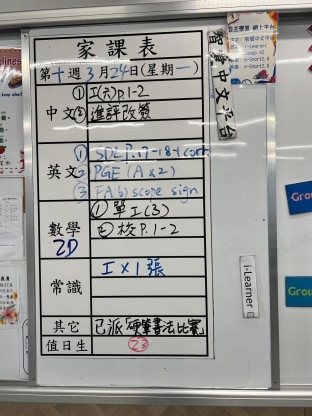 家課表
第十週3月24日(星期一)
中文
① 工(六)p.1-2
② 進評改簽
英文
① SDL P.17-18+corr.
② PGE (A & 2)
③ FA(b) scope sign
數學
2D
① 單工(3)
② 校P.1-2
常識
工 X 1張
其它
已派「硬筆書法比賽」
值日生
23
中文平台
自主學習 網上平台
i-Learner
Grou
Grou